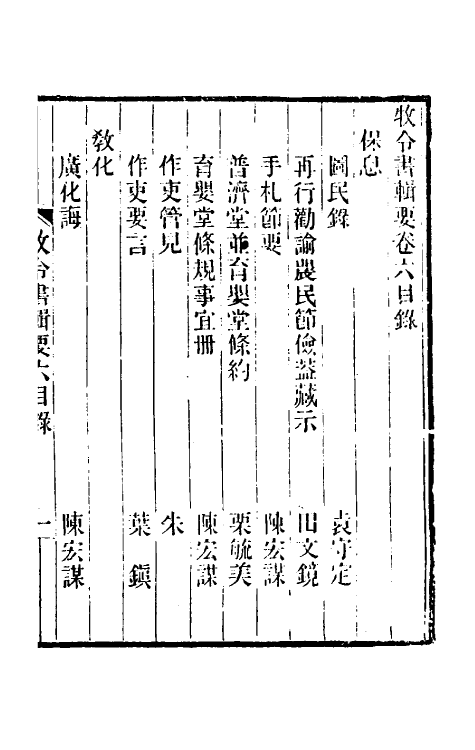 牧令書輯要卷六目錄
保息
圖民錄 袁守定
再行勸諭農民節儉葢藏示 田文鏡
手札節要 陳宏謀
普濟堂並育嬰堂條約 栗毓美
育嬰堂條規事宜冊 陳宏謀
作吏管見 朱
作吏要言 葉鎭
敎化
廣化誨 陳宏謀
牧令書輯要六目錄 一